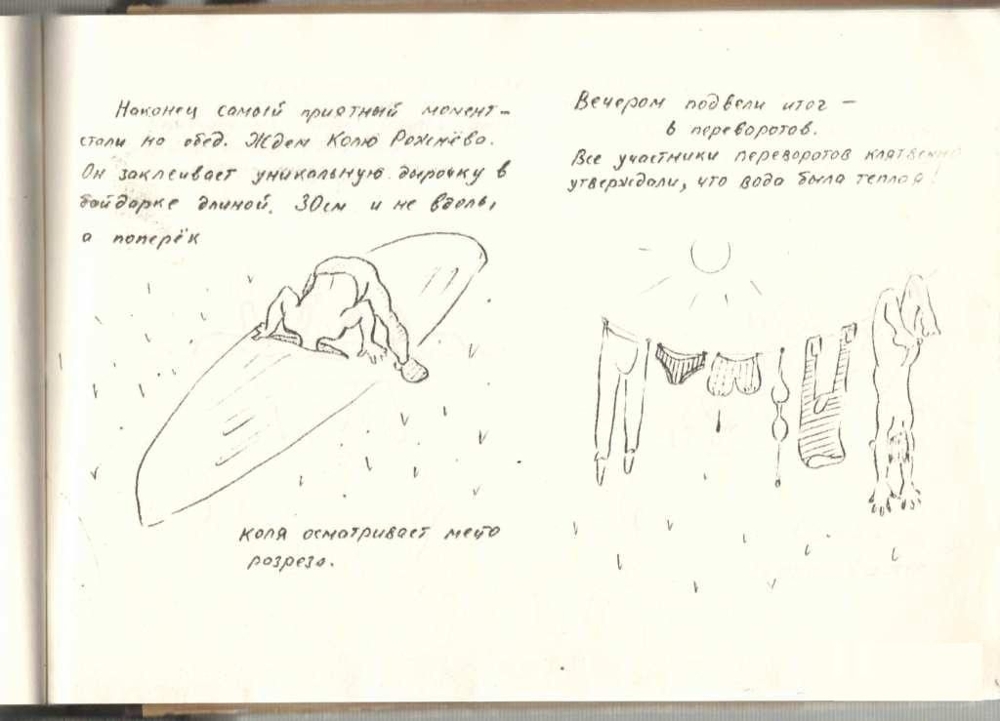 Наконец самый приятный момент -
стали на обед. Ждем Колю Рожнёва.
Он заклеивает уникальную дырочку в
байдарке длиной, 30см и не вдоль,
а поперёк
Коля осматривает место
разреза.
Вечером подвели итог -
8 переворотов.
Все участники переворотов клятвенно
утверждали, что вода была теплая!